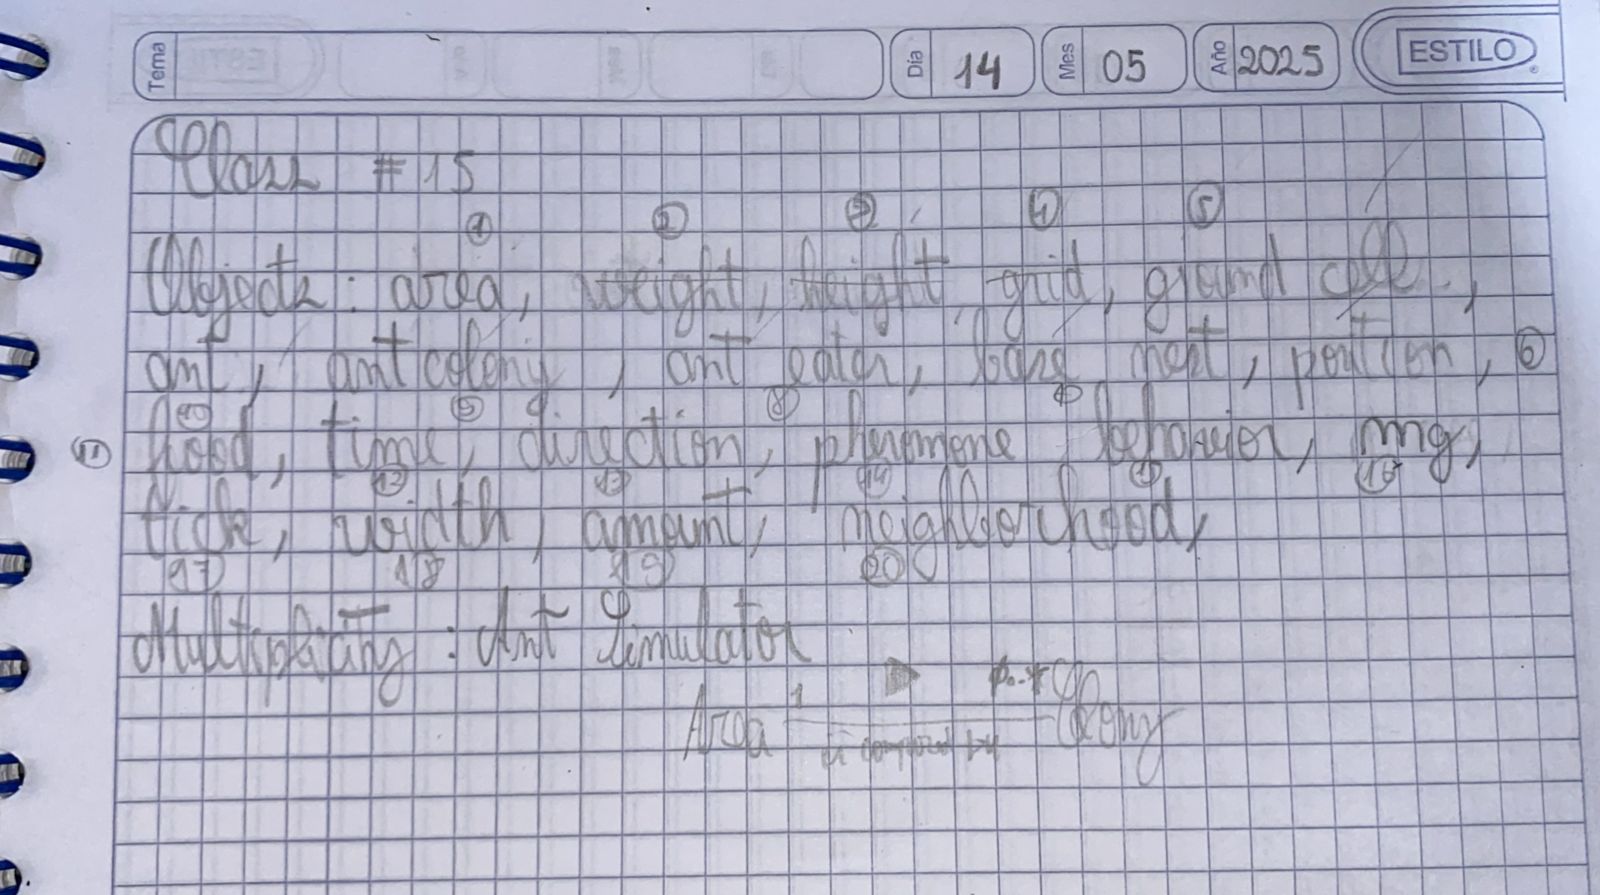 Tema Día 14 Mes 05 Año 2025 ESTILO
Class #15
① ② ③ ④ ⑤
Objects: area, weight, height, grid, ground cell,
ant, ant colony, ant eater, base nest, portion, ⑥
⑩ ⑨ ⑧
⑪ food, time, direction, pheromone behavior, mg,
⑫ ⑬ ⑭ ⑯
tick, width, amount, neighborhood,
17 18 19 20
Multiplicity: Ant Simulator
1 0..*
Area Colony
is composed by